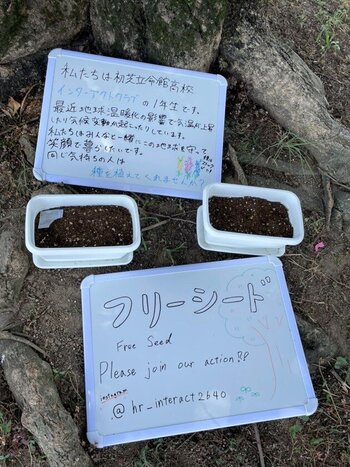 私たちは初芝立命館高校
インターアクトクラブの1年生です。
最近地球温暖化の影響で気温が上昇
したり気候変動が起こったりしています。
私たちはみんなと一緒にこの地球を守って
笑顔で暮らしたいです。
同じ気持ちの人は
種を植えてくれませんか?
フリーシード
Free Seed
Please join our action!!
instagram
@ hr_interact2640